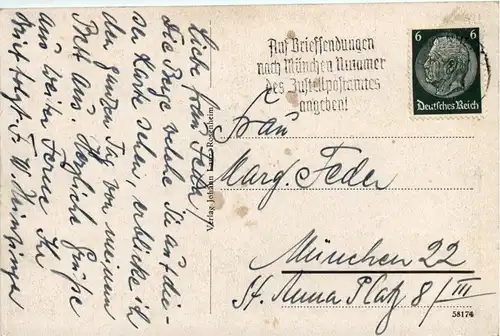 Liebe Frau Feder,
die Berge welche Sie auf die-
ser Karte sehen, erblicke ich
den ganzen Tag von meinem
Bett aus. Herzliche Grüße
aus weiter Ferne Ihr
F. W.
Verlag Johann Rosenheim
Auf Briefsendungen
nach München Nummer
des Zustellpostamtes
angeben!
6 6
Deutsches Reich
Frau
Marg. Feder
München 22
St. Anna Platz 8/III
58174